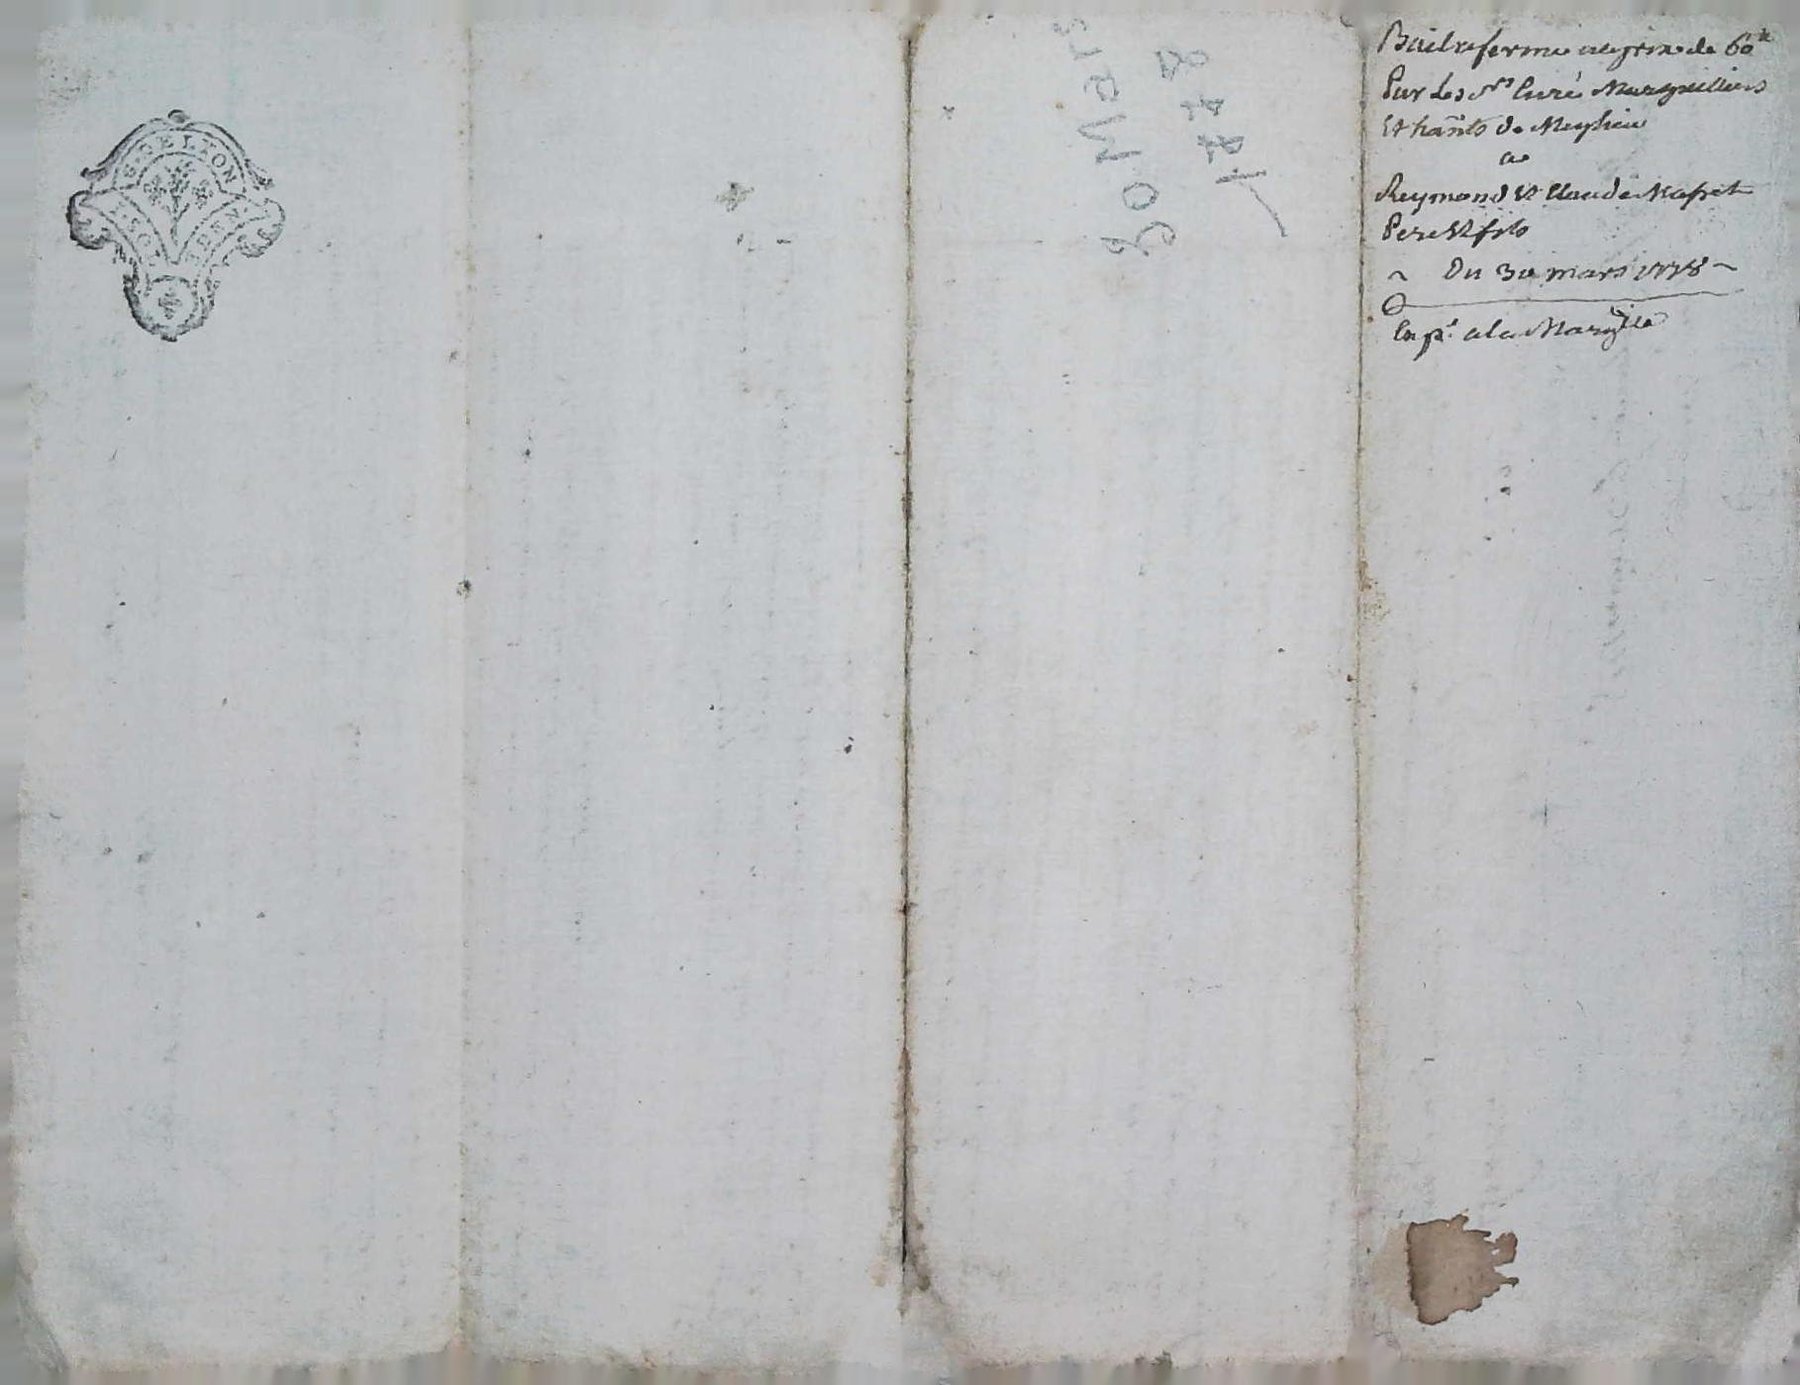 G. DE LYON
SOLS
DEUX
30 Mars
1778
Bail a ferme au prix de 60 ₶
Par Les Srs Curé Marguilliers
Et hants de Meyzieu
a
Reymond Et Claude
Pere Et fils
~ Du 30 mars 1778 ~
a la